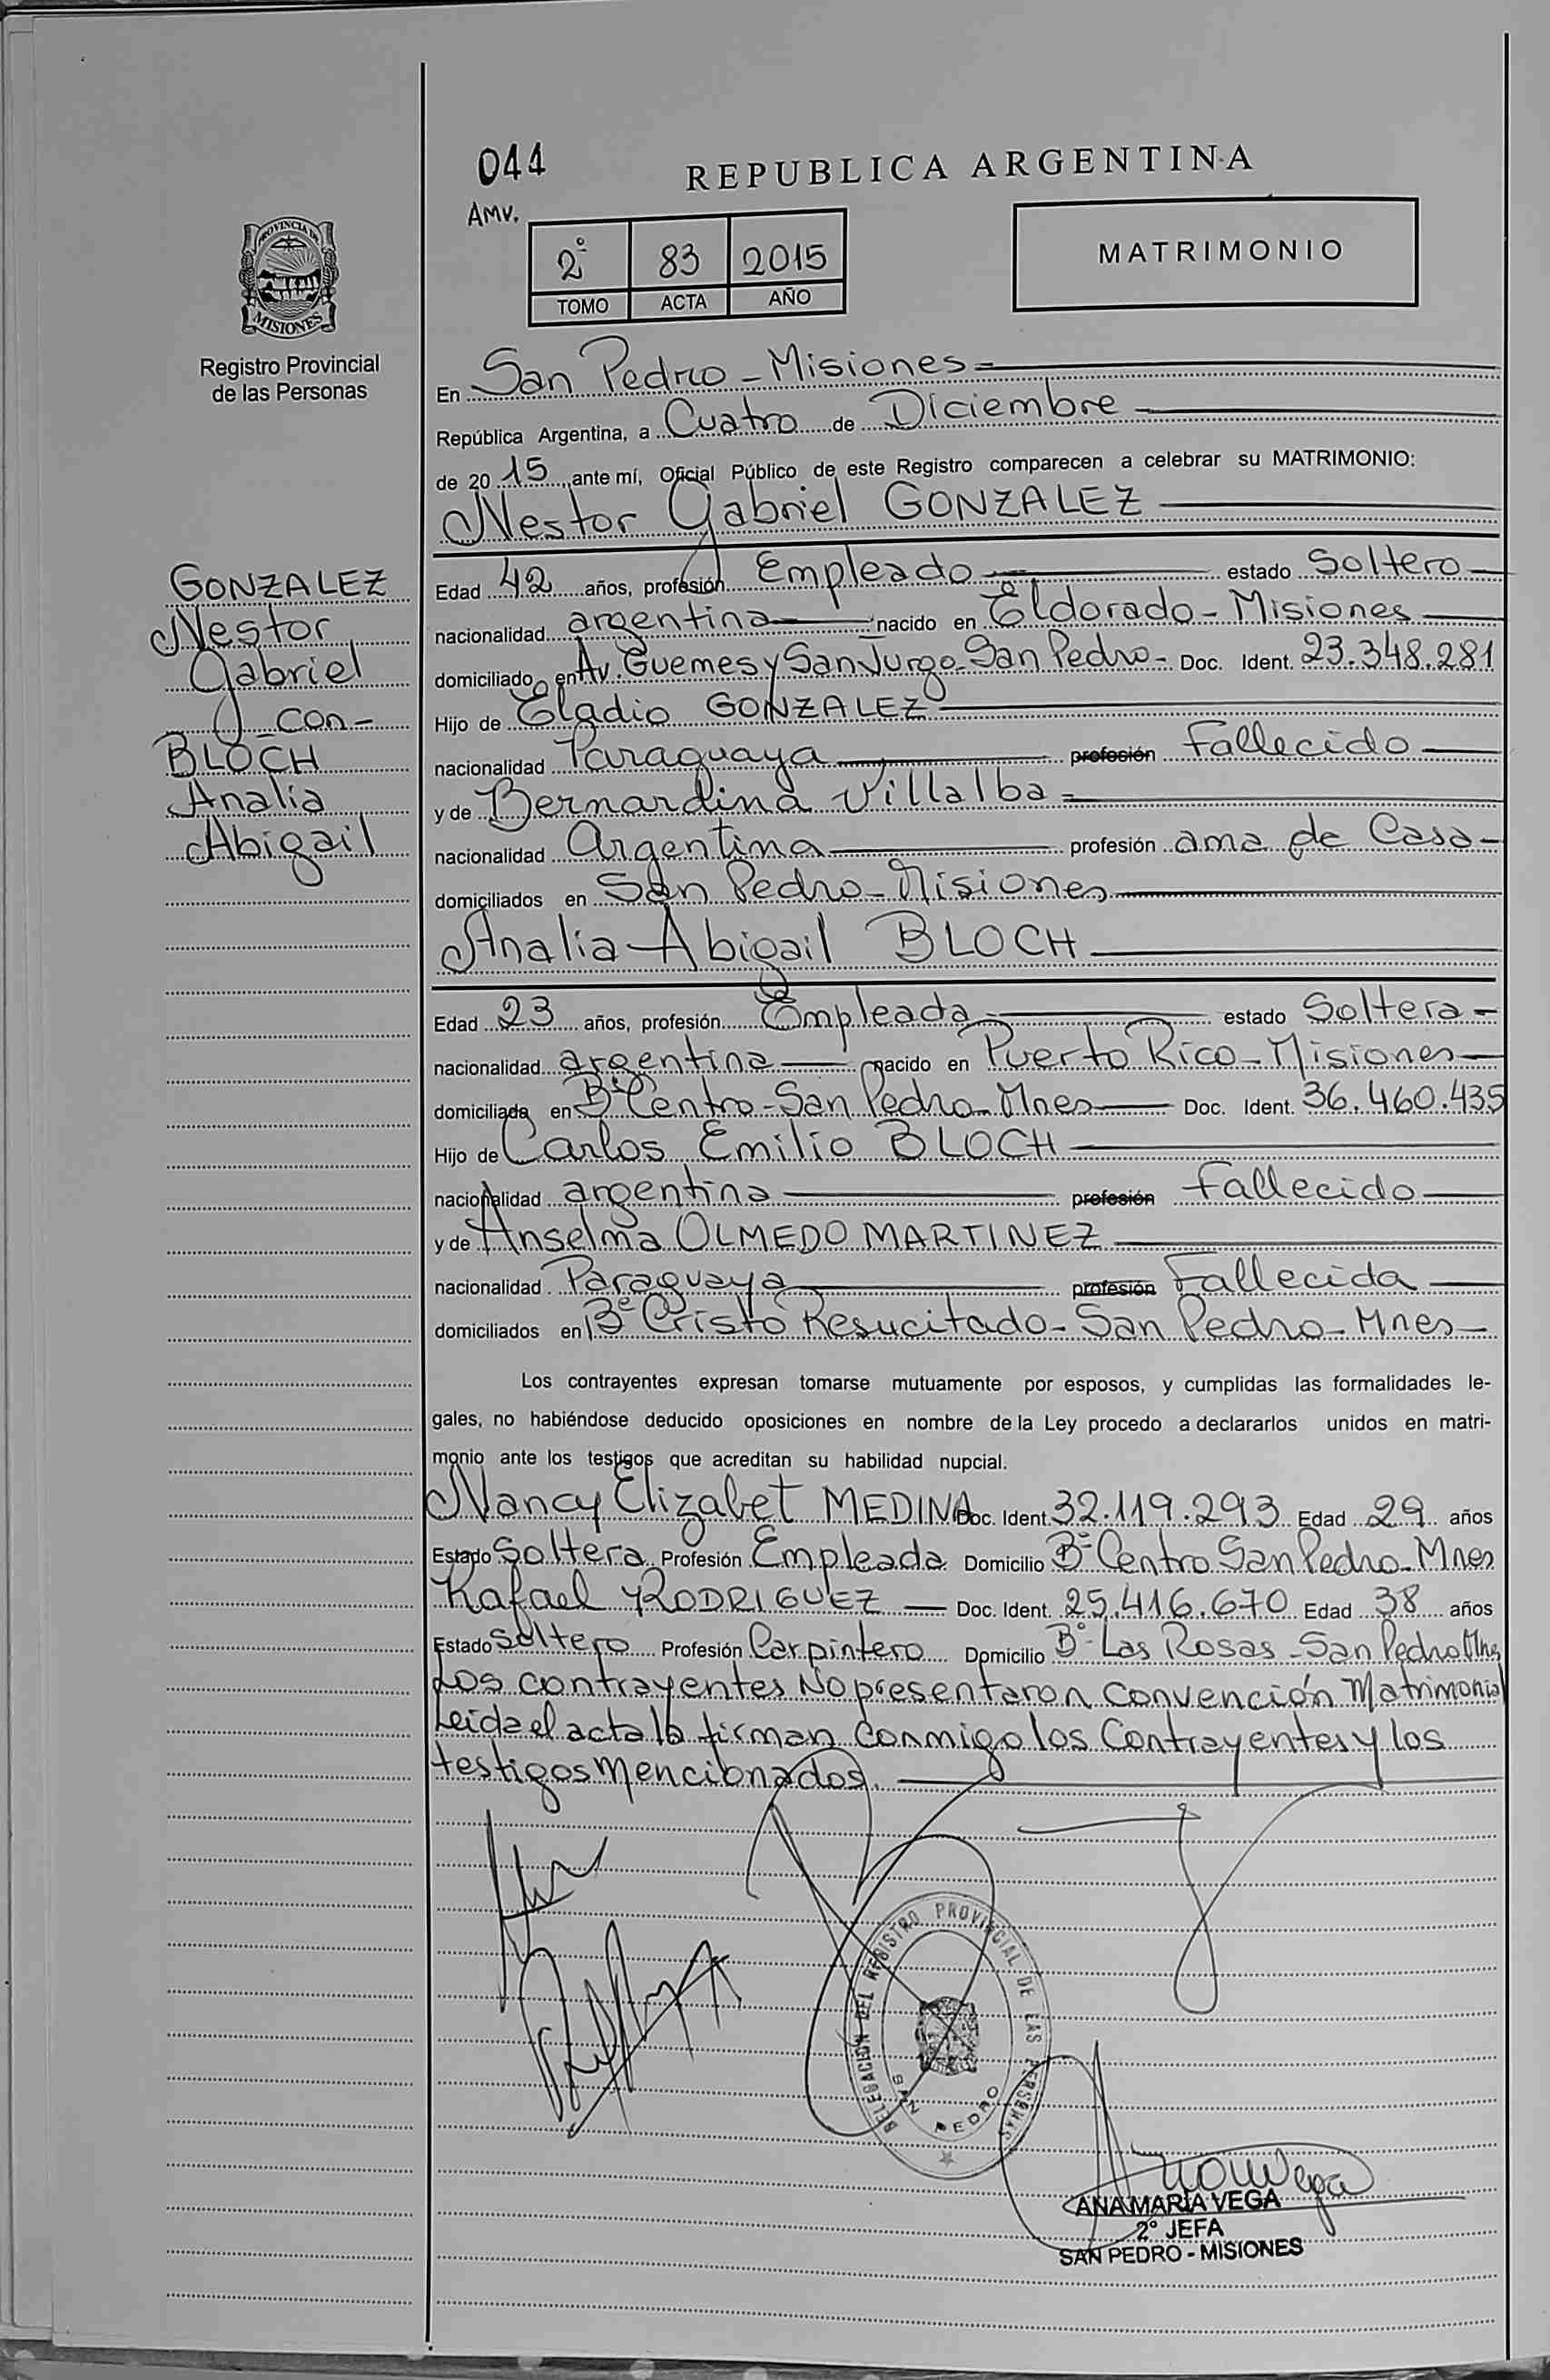 044
REPUBLICA ARGENTINA
AMV.
2º 83 2015
TOMO ACTA AÑO
MATRIMONIO
PROVINCIA DE
MISIONES
Registro Provincial
de las Personas
En San Pedro - Misiones
República Argentina, a Cuatro de Diciembre
de 2015, ante mí, Oficial Público de este Registro comparecen a celebrar su MATRIMONIO:
Nestor Gabriel GONZALEZ
GONZALEZ
Nestor
Gabriel
- con -
BLOCH
Analia
Abigail
Edad 42 años, profesión Empleado estado Soltero
nacionalidad argentina nacido en Eldorado - Misiones
domiciliado en Av. Guemes y San Jurgo - San Pedro - Doc. Ident. 23.348.281
Hijo de Eladio GONZALEZ
nacionalidad Paraguaya profesión Fallecido
y de Bernardina Villalba
nacionalidad Argentina profesión ama de Casa
domiciliados en San Pedro - Misiones
Analia Abigail BLOCH
Edad 23 años, profesión Empleada estado Soltera
nacionalidad argentina nacido en Puerto Rico - Misiones
domiciliada en Bº Centro - San Pedro - Mnes Doc. Ident. 36.460.435
Hijo de Carlos Emilio BLOCH
nacionalidad argentina profesión Fallecido
y de Anselma OLMEDO MARTINEZ
nacionalidad Paraguaya profesión Fallecida
domiciliados en Bº Cristo Resucitado - San Pedro - Mnes
Los contrayentes expresan tomarse mutuamente por esposos, y cumplidas las formalidades le-
gales, no habiéndose deducido oposiciones en nombre de la Ley procedo a declararlos unidos en matri-
monio ante los testigos que acreditan su habilidad nupcial.
Nancy Elizabet MEDINA Doc. Ident. 32.119.293 Edad 29 años
Estado Soltera Profesión Empleada Domicilio Bº Centro San Pedro - Mnes
Rafael RODRIGUEZ Doc. Ident. 25.416.670 Edad 38 años
Estado Soltero Profesión Carpintero Domicilio Bº Las Rosas - San Pedro Mnes
Los contrayentes No presentaron Convención Matrimonial
Leida el acta la firman Conmigo los Contrayentes y los
testigos mencionados.
DELEGACION DEL REGISTRO PROVINCIAL DE LAS PERSONAS
SAN PEDRO
ANA MARÍA VEGA
2º JEFA
SAN PEDRO - MISIONES